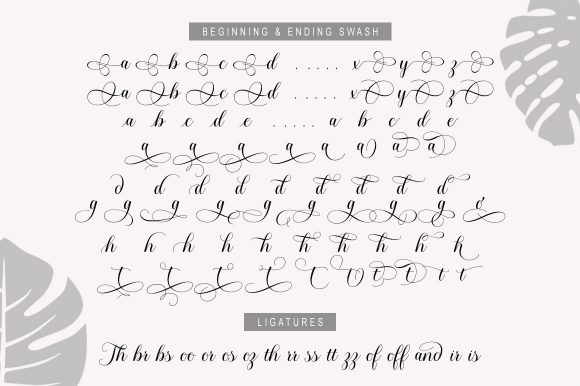 BEGINNING & ENDING SWASH
a b c d ..... x y z
a b c d ..... x y z
a b c d e ..... a b c d e
a a a a a a a a
d d d d d d d d
g g g g g g g g g g
h h h h h h h h h h
t t t t t t t t t
LIGATURES
Th br bs oo or os oz th rr ss tt zz of off and ir is